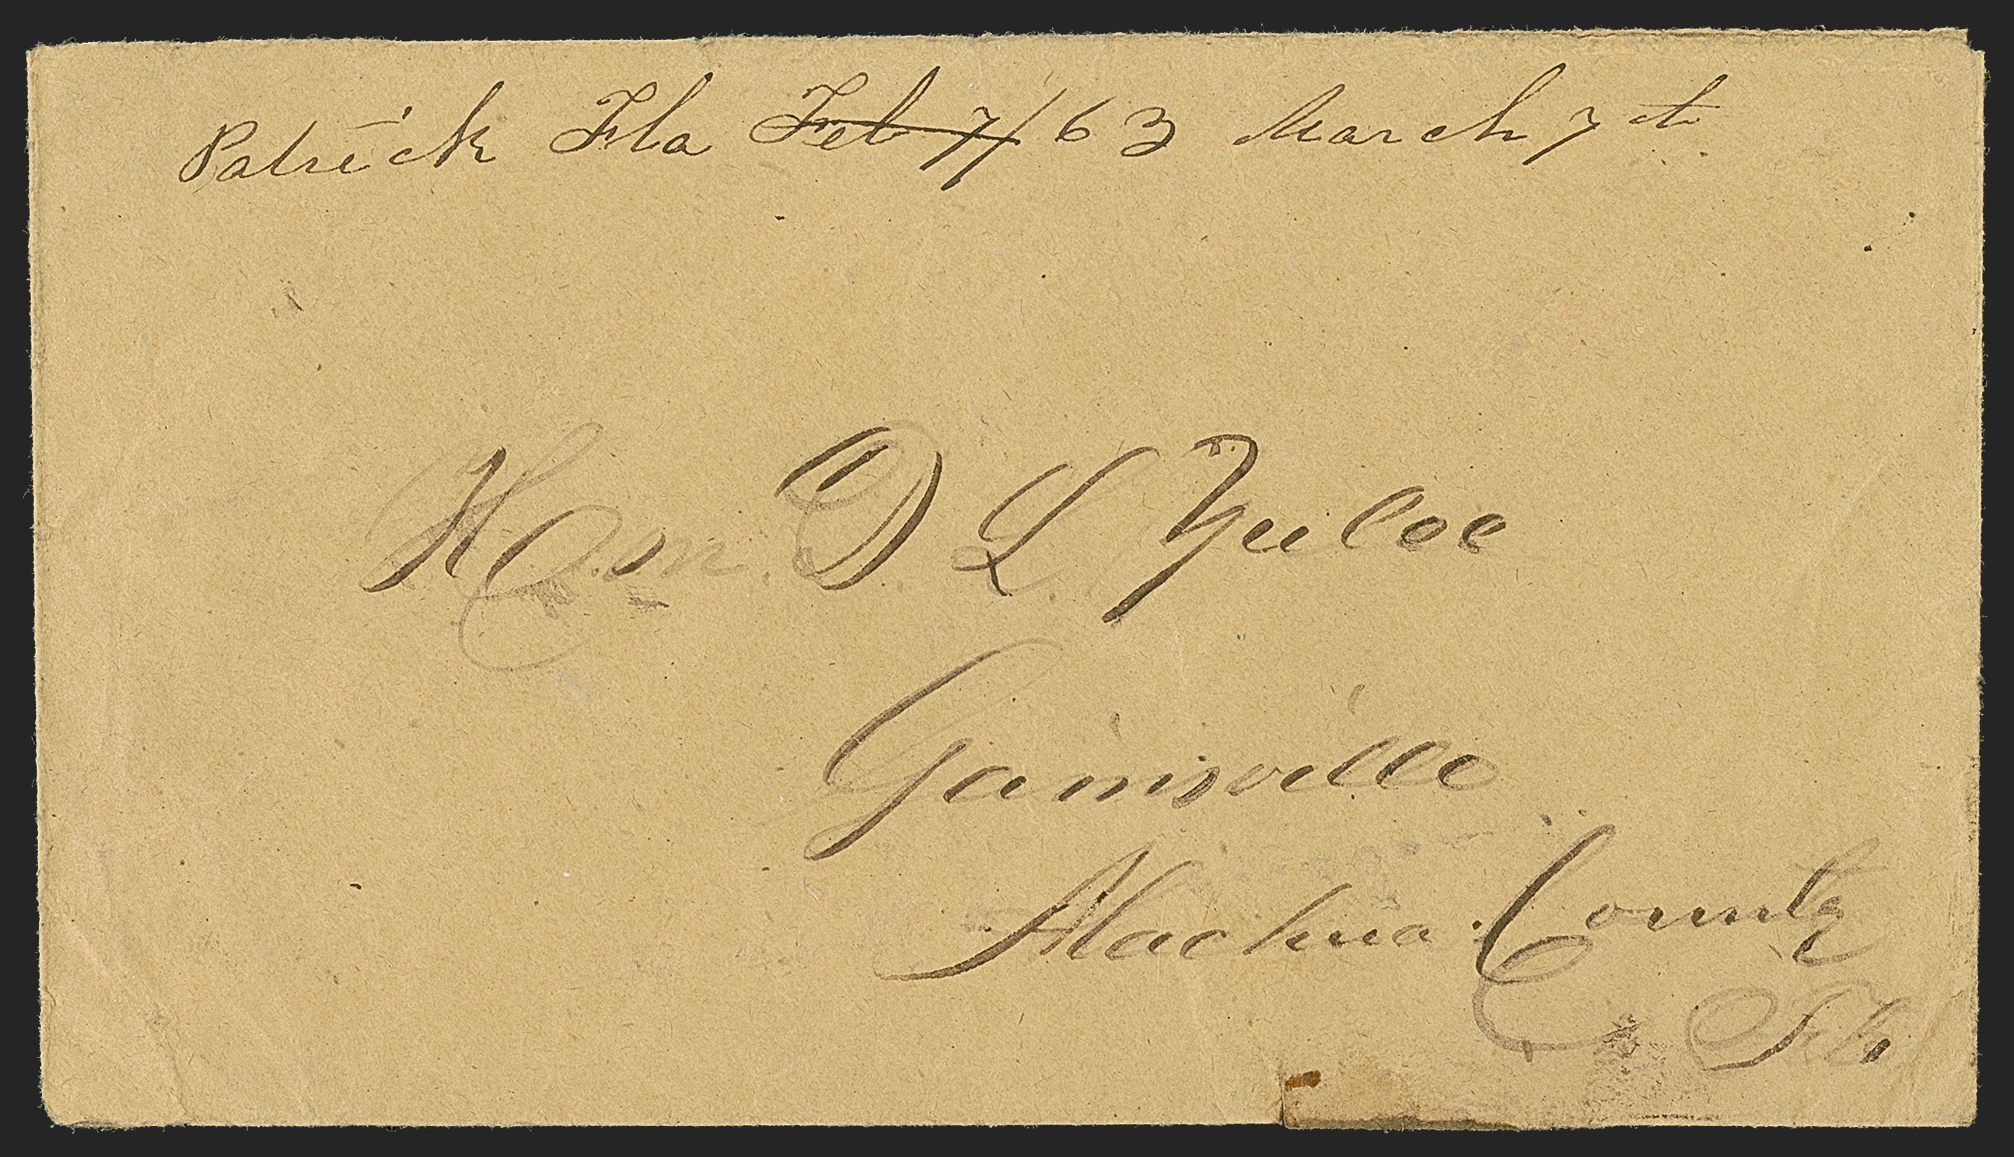 Patrick Fla Feb 7/63 March 7th
Hon. D. L. Yulee
Gainsville
Alachua County
Fla